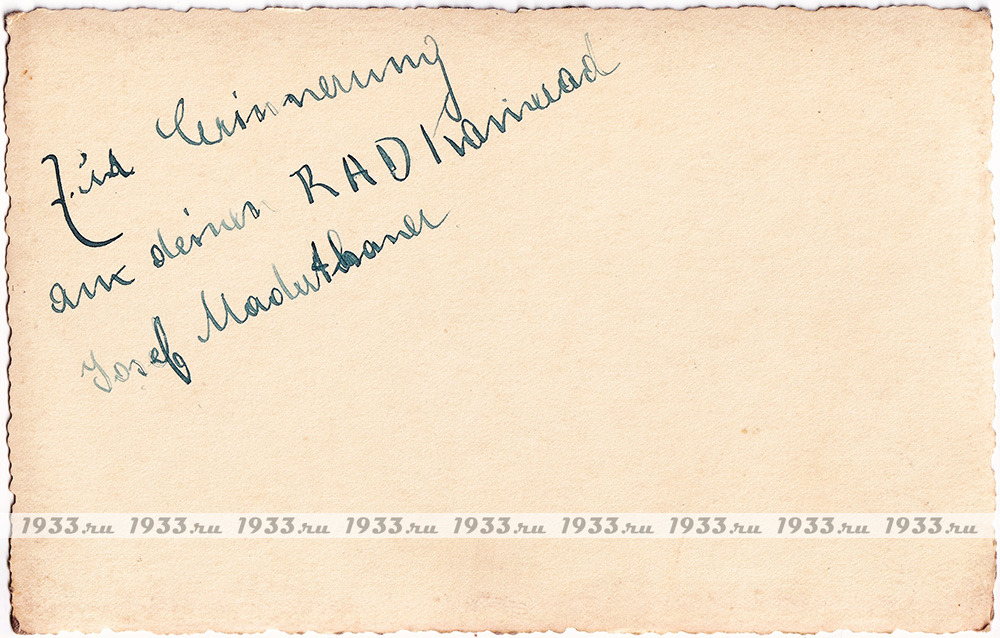 Zur Erinnerung
aux deinen RAD Kamerad
Josef Maderthaner
1933.ru 1933.ru 1933.ru 1933.ru 1933.ru 1933.ru 1933.ru 1933.ru 1933.ru